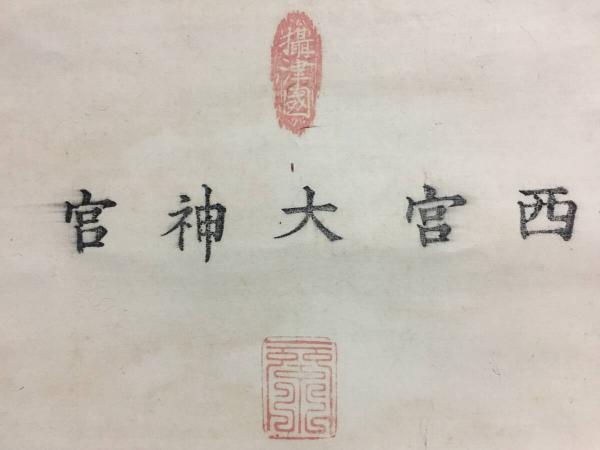 攝津國
西宮大神宮